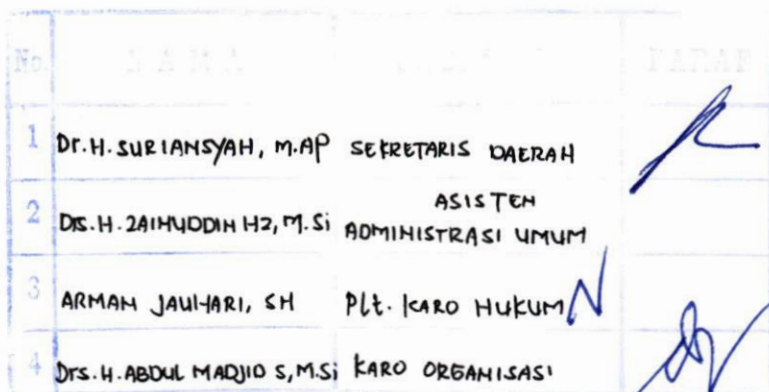 No NAMA PARAF
1 Dr. H. SURIANSYAH, M.AP SEKRETARIS DAERAH
2 Drs. H. ZAINUDDIN HZ, M.Si ASISTEN
ADMINISTRASI UMUM
3 ARMAN JAUHARI, SH Plt. KARO HUKUM
4 Drs. H. ABDUL MADJID S, M.Si KARO ORGANISASI